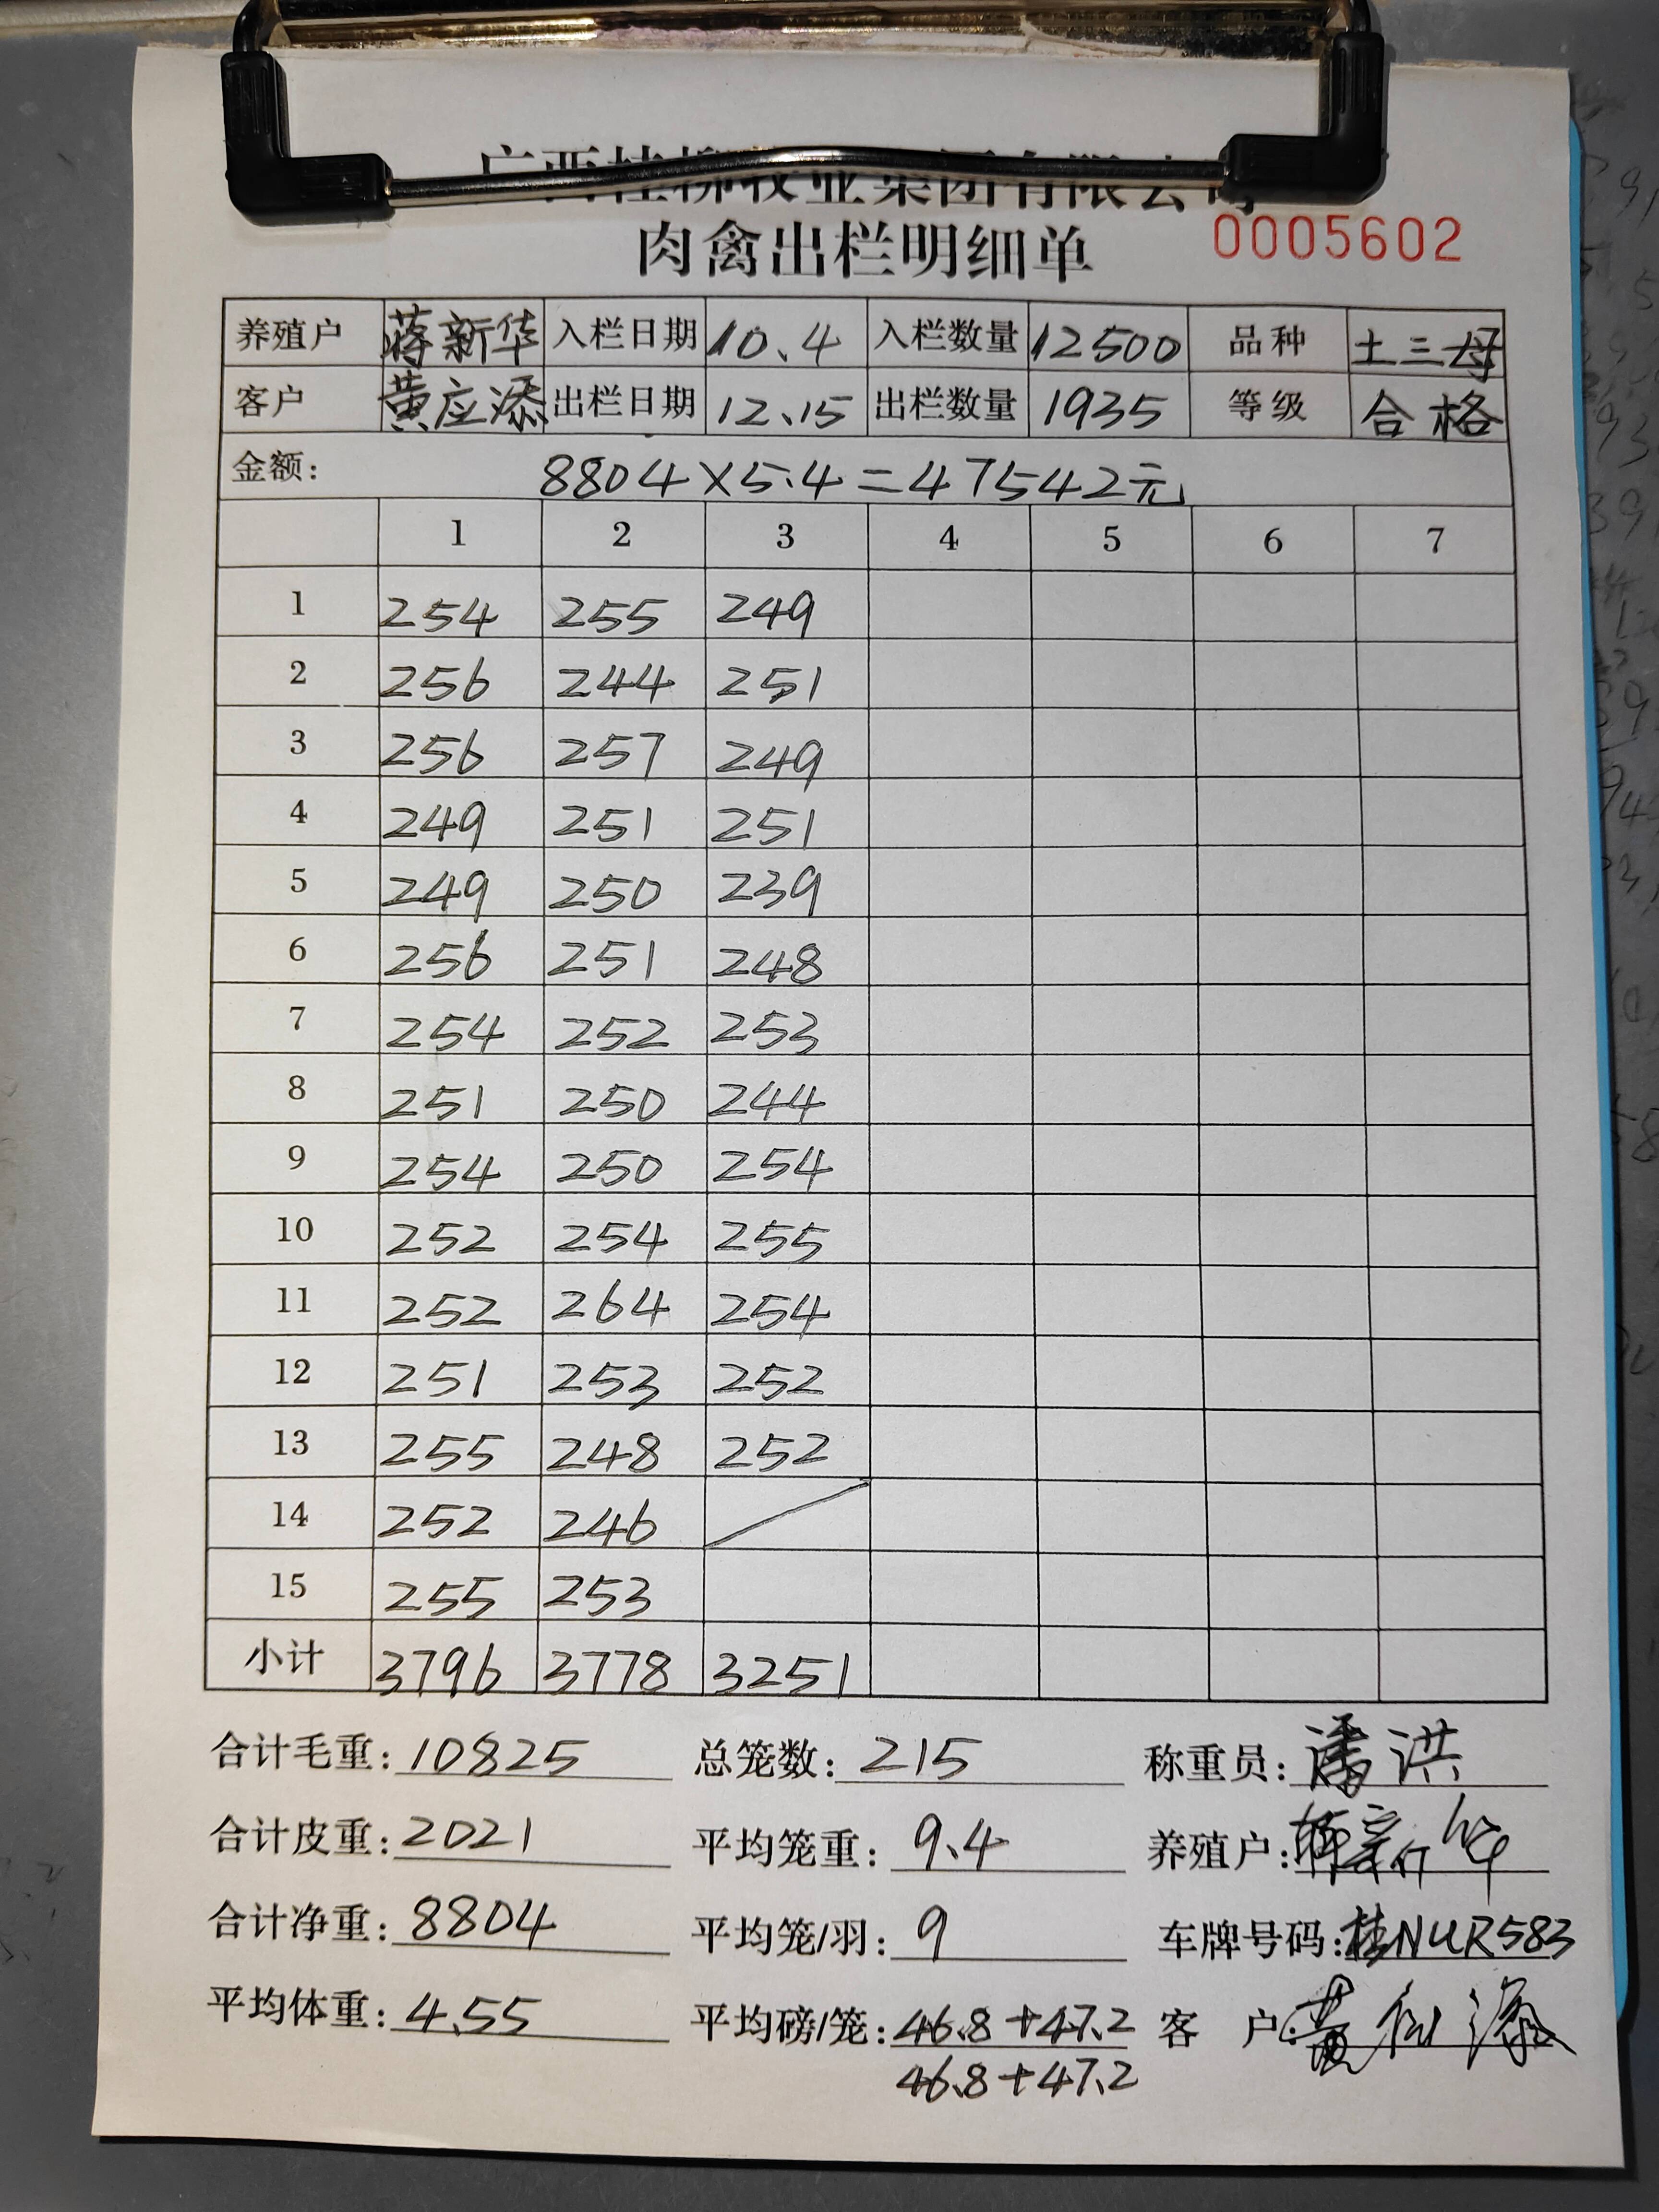 广西桂柳牧业集团有限公司
肉禽出栏明细单 0005602
养殖户 蒋新华 入栏日期 10.4 入栏数量 12500 品种 土三母
客户 黄应添 出栏日期 12.15 出栏数量 1935 等级 合格
金额: 8804×5.4=47542元
1 2 3 4 5 6 7
1 254 255 249
2 256 244 251
3 256 257 249
4 249 251 251
5 249 250 239
6 256 251 248
7 254 252 253
8 251 250 244
9 254 250 254
10 252 254 255
11 252 264 254
12 251 253 252
13 255 248 252
14 252 246
15 255 253
小计 3796 3778 3251
合计毛重: 10825 总笼数: 215 称重员: 潘洪
合计皮重: 2021 平均笼重: 9.4 养殖户: 蒋新华
合计净重: 8804 平均笼/羽: 9 车牌号码: 桂NUR583
平均体重: 4.55 平均磅/笼: 46.8+47.2 客 户: 黄应添
46.8+47.2